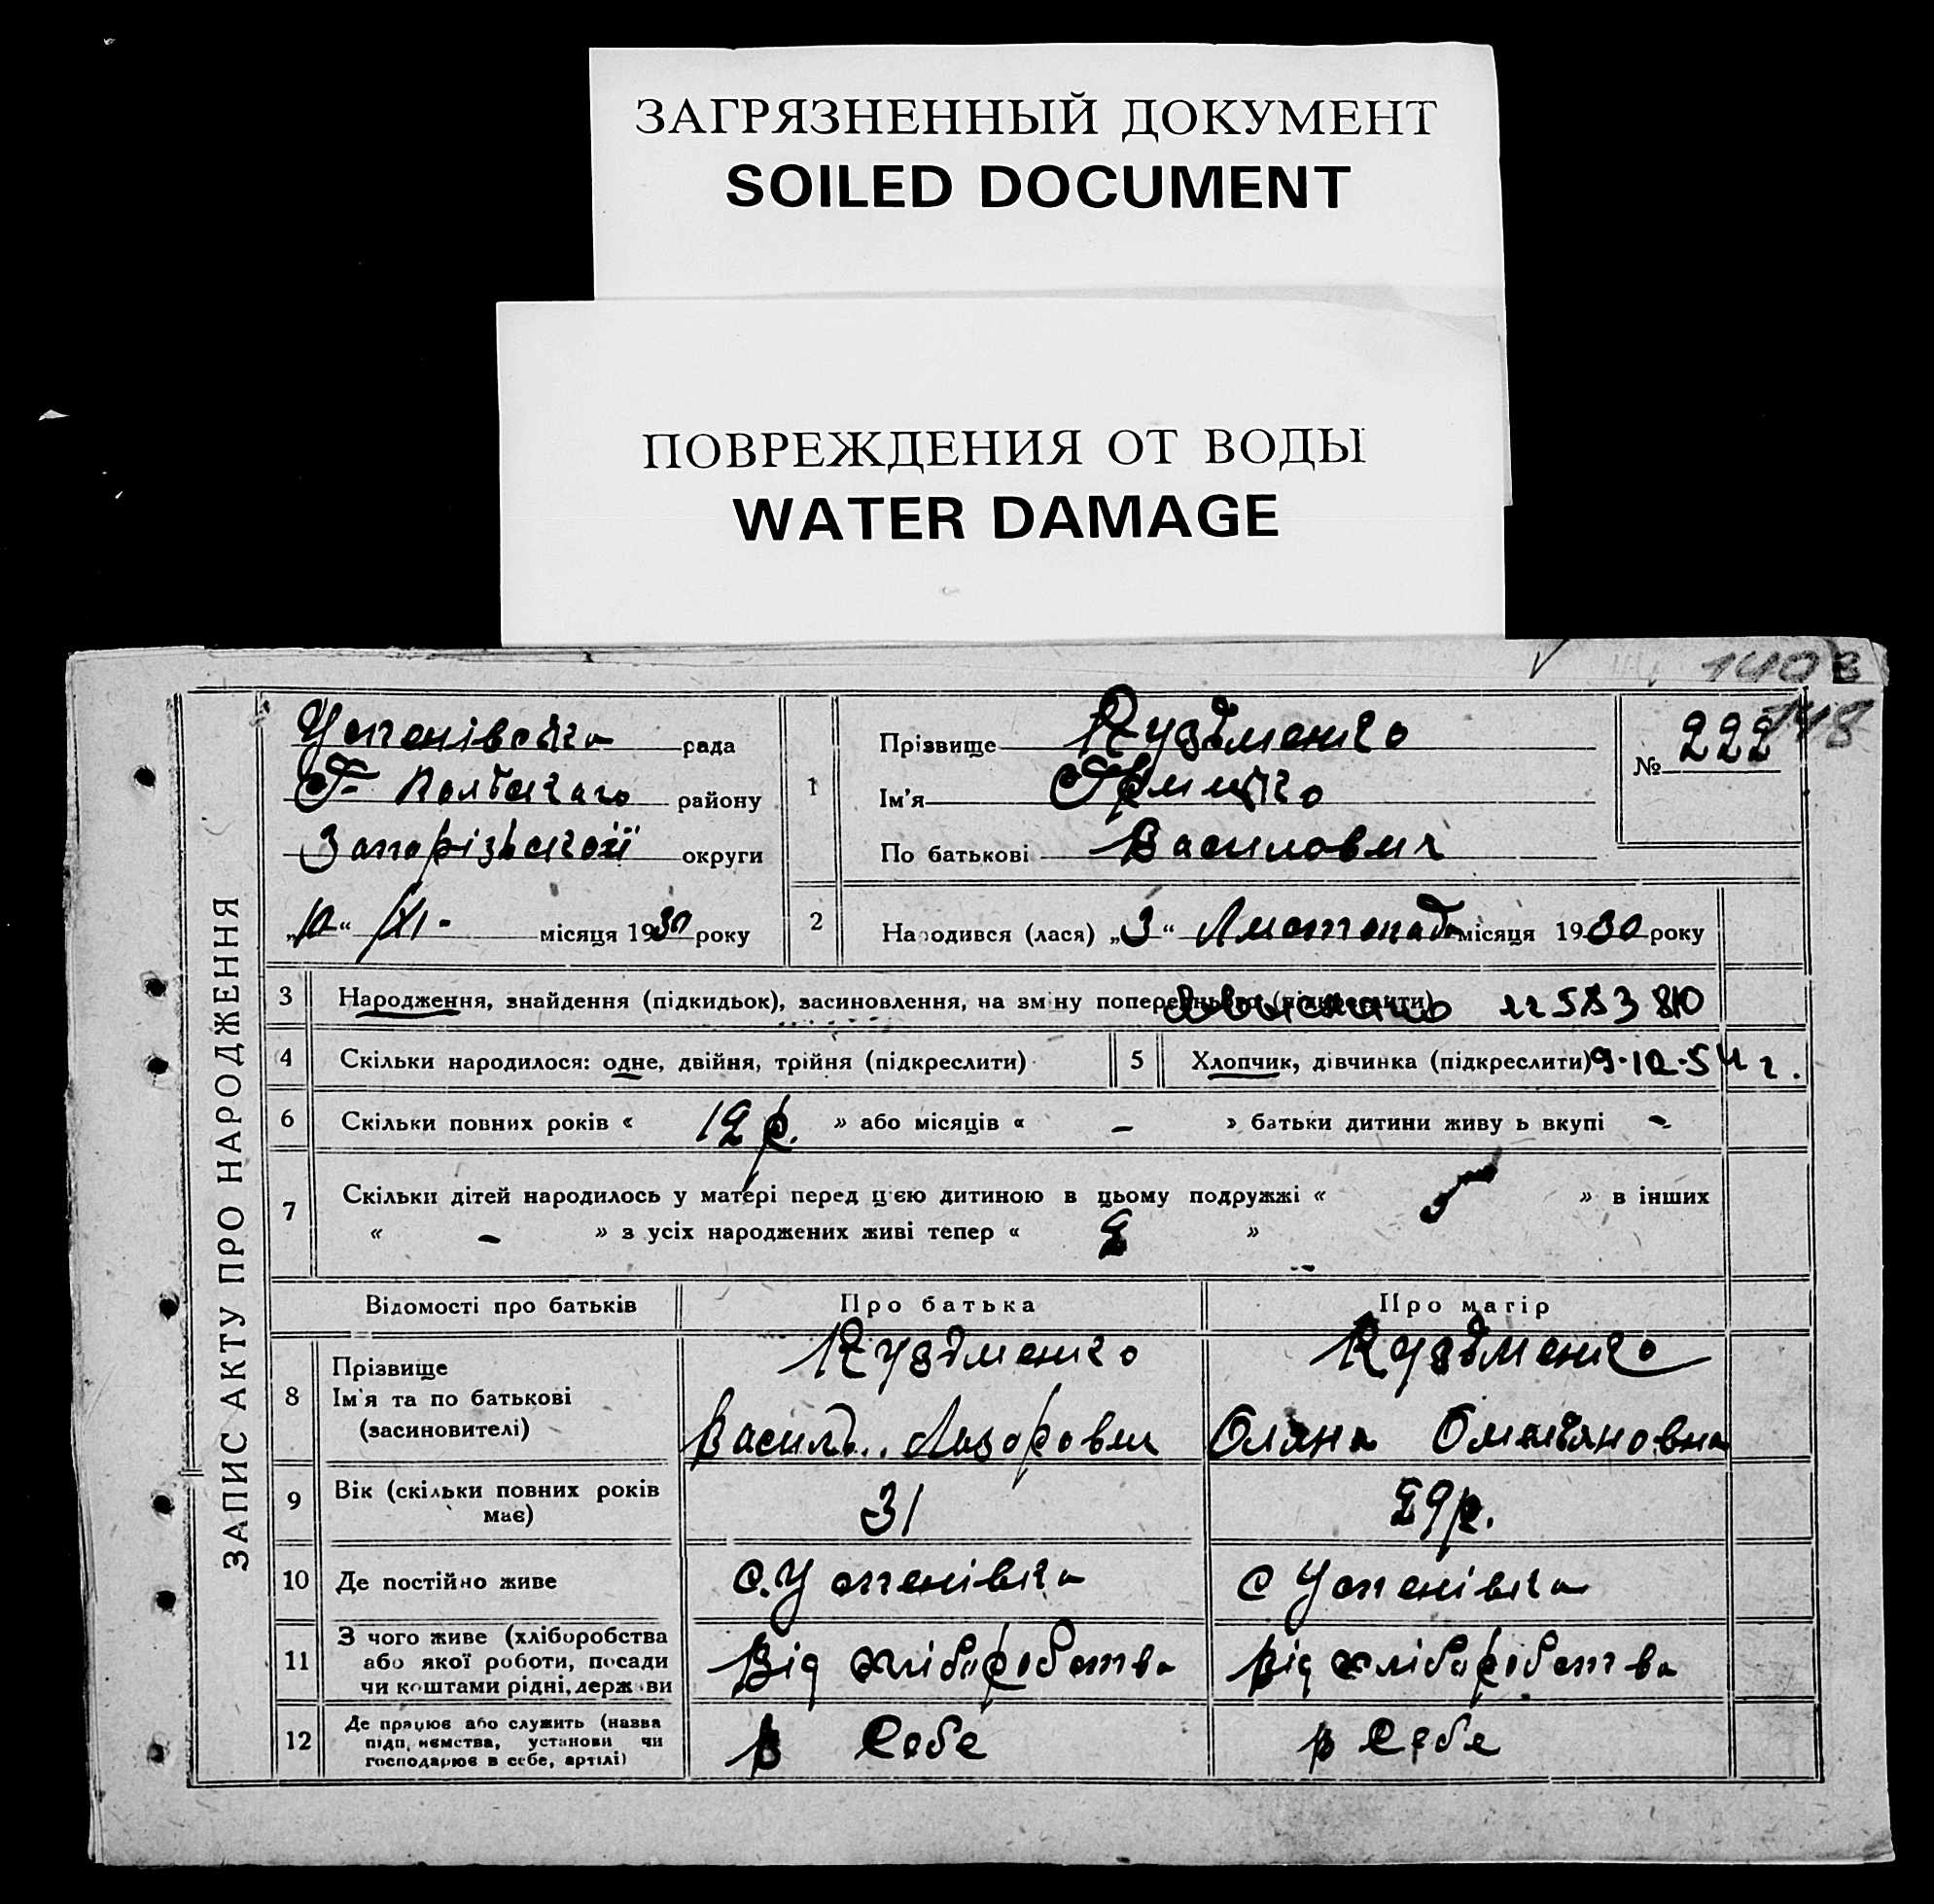 ЗАГРЯЗНЕННЫЙ ДОКУМЕНТ
SOILED DOCUMENT
ПОВРЕЖДЕНИЯ ОТ ВОДЫ
WATER DAMAGE
1403
148
ЗАПИС АКТУ ПРО НАРОДЖЕННЯ
Успенівська рада
Г- району
Запорізької округи
„10“ /XI- місяця 1930 року
1
Прізвище Кузьменко
Ім'я Грицько
По батькові Василович
№ 222
2 Народився (лася) „3“ Листопада місяця 1930 року
3 Народження, знайдення (підкидьок), засиновлення, на зміну попереднього (підкреслити)
4 Скільки народилося: одне, двійня, трійня (підкреслити) 5 Хлопчик, дівчинка (підкреслити) 9-10-54 г.
6 Скільки повних років « 12 р. » або місяців « – » батьки дитини живуть вкупі –
7 Скільки дітей народилось у матері перед цією дитиною в цьому подружжі « 5 » в інших
« – » з усіх народжених живі тепер « 2 »
Відомості про батьків Про батька Про матір
8 Прізвище Кузьменко Кузьменко
Ім'я та по батькові
(засиновителі) Василь Лазорович Оляна Омельяновна
9 Вік (скільки повних років має) 31 29 р.
10 Де постійно живе с. Успенівка с Успенівка
11 З чого живе (хліборобства
або якої роботи, посади
чи коштами рідні, держави Від хліборобства Від хліборобства
12 Де працює або служить (назва
підприємства, установи чи
господарює в себе, артілі) в себе в себе